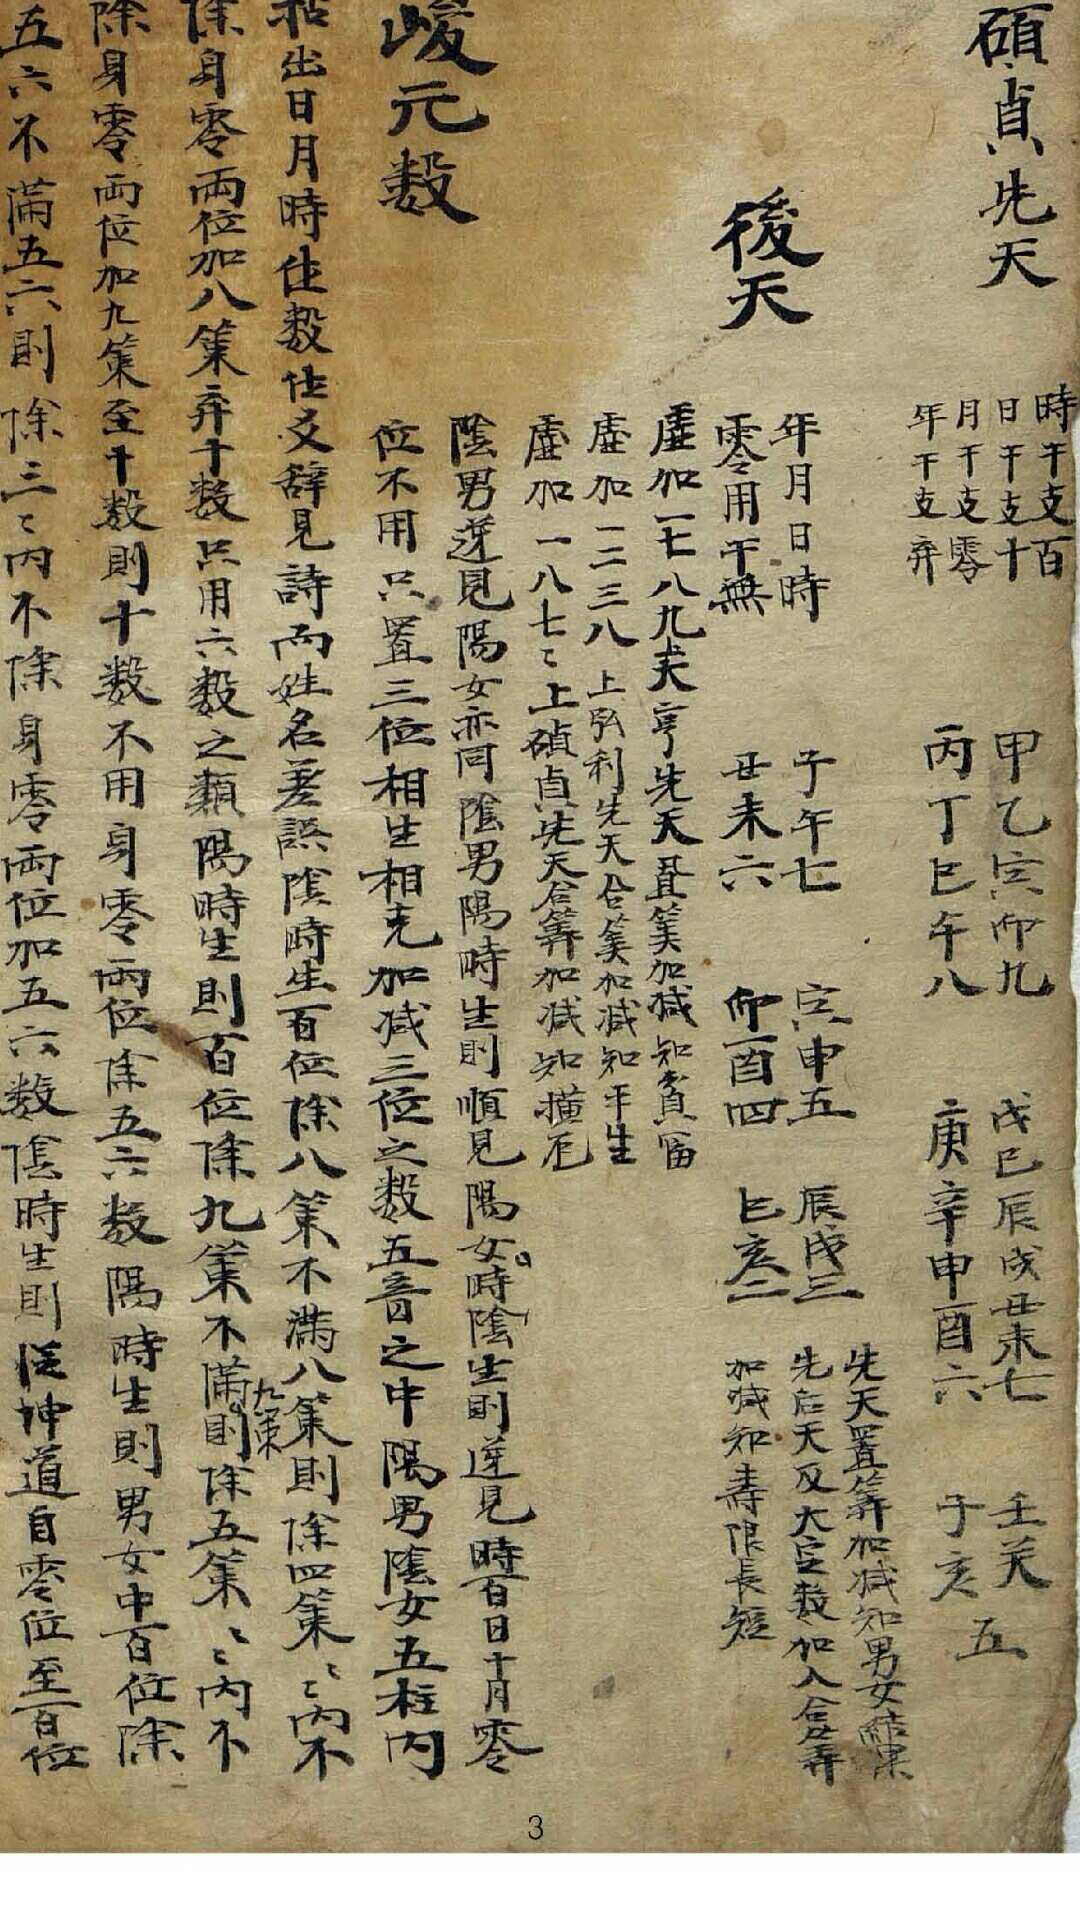 碩貞先天
時干支百
日干支十
月干支零
年干支弃
甲乙寅卯九
丙丁巳午八
戊己辰戌丑未七
庚辛申酉六
壬癸
子亥
五
後天
年月日時
零用干無
子午七
丑未六
寅申五
卯酉四
辰戌三
巳亥二
先天置筭加减知男女
先后天及大定数加入合筭
加减知壽限長短
虛加一七八九 亨先天 筭加减知貧富
虛加一二三八 上弘利先天合筭加减知平生
虛加一八七〻上碩貞先天合筭加减知
陰男逆見陽女亦同陰男陽時生則順見陽女時陰生則逆見時百日十月零
位不用只置三位相生相克加减三位之数五音之中陽男陰女五柱内
峻元数
拈出日月時住数住爻辞見詩而姓名差誤陰時生百位除八策不滿八策則除四策〻〻内不
除身零兩位加八策弃十数只用六数之類陽時生則百位除九策不滿九策則除五策〻〻内不
除身零兩位加九策至十数則十数不用身零兩位除五六数陽時生則男女中百位除
五六不滿五六則除三〻内不除身零兩位加五六数陰時生則從坤道自零位至百位
3